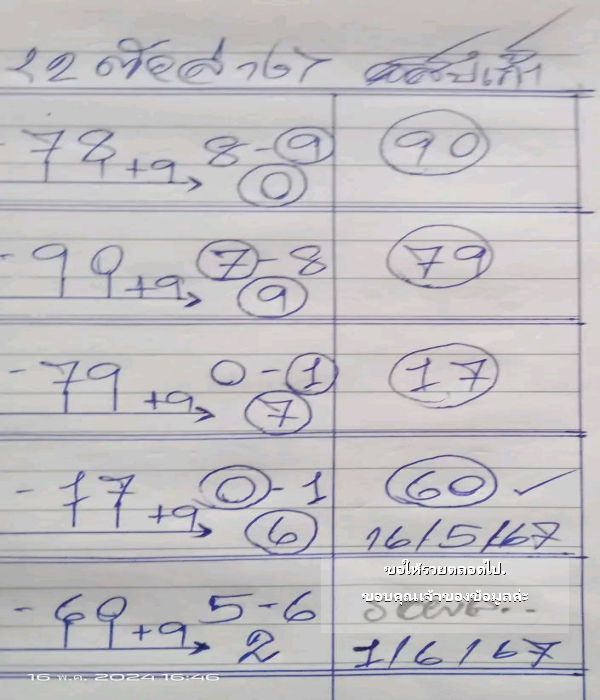 12 ตัวล่าง
78 +9 8-9 90
0
-90 +9 7-8 79
9
-79 +9 0-1 17
7
-17 +9 0-1 60
6 16/5/67
ขอให้รวยตลอดไป.
ขอบคุณเจ้าของข้อมูลค่ะ
-60 +9 5-6
2 1/6/67
16 พ.ค. 2024 16:46